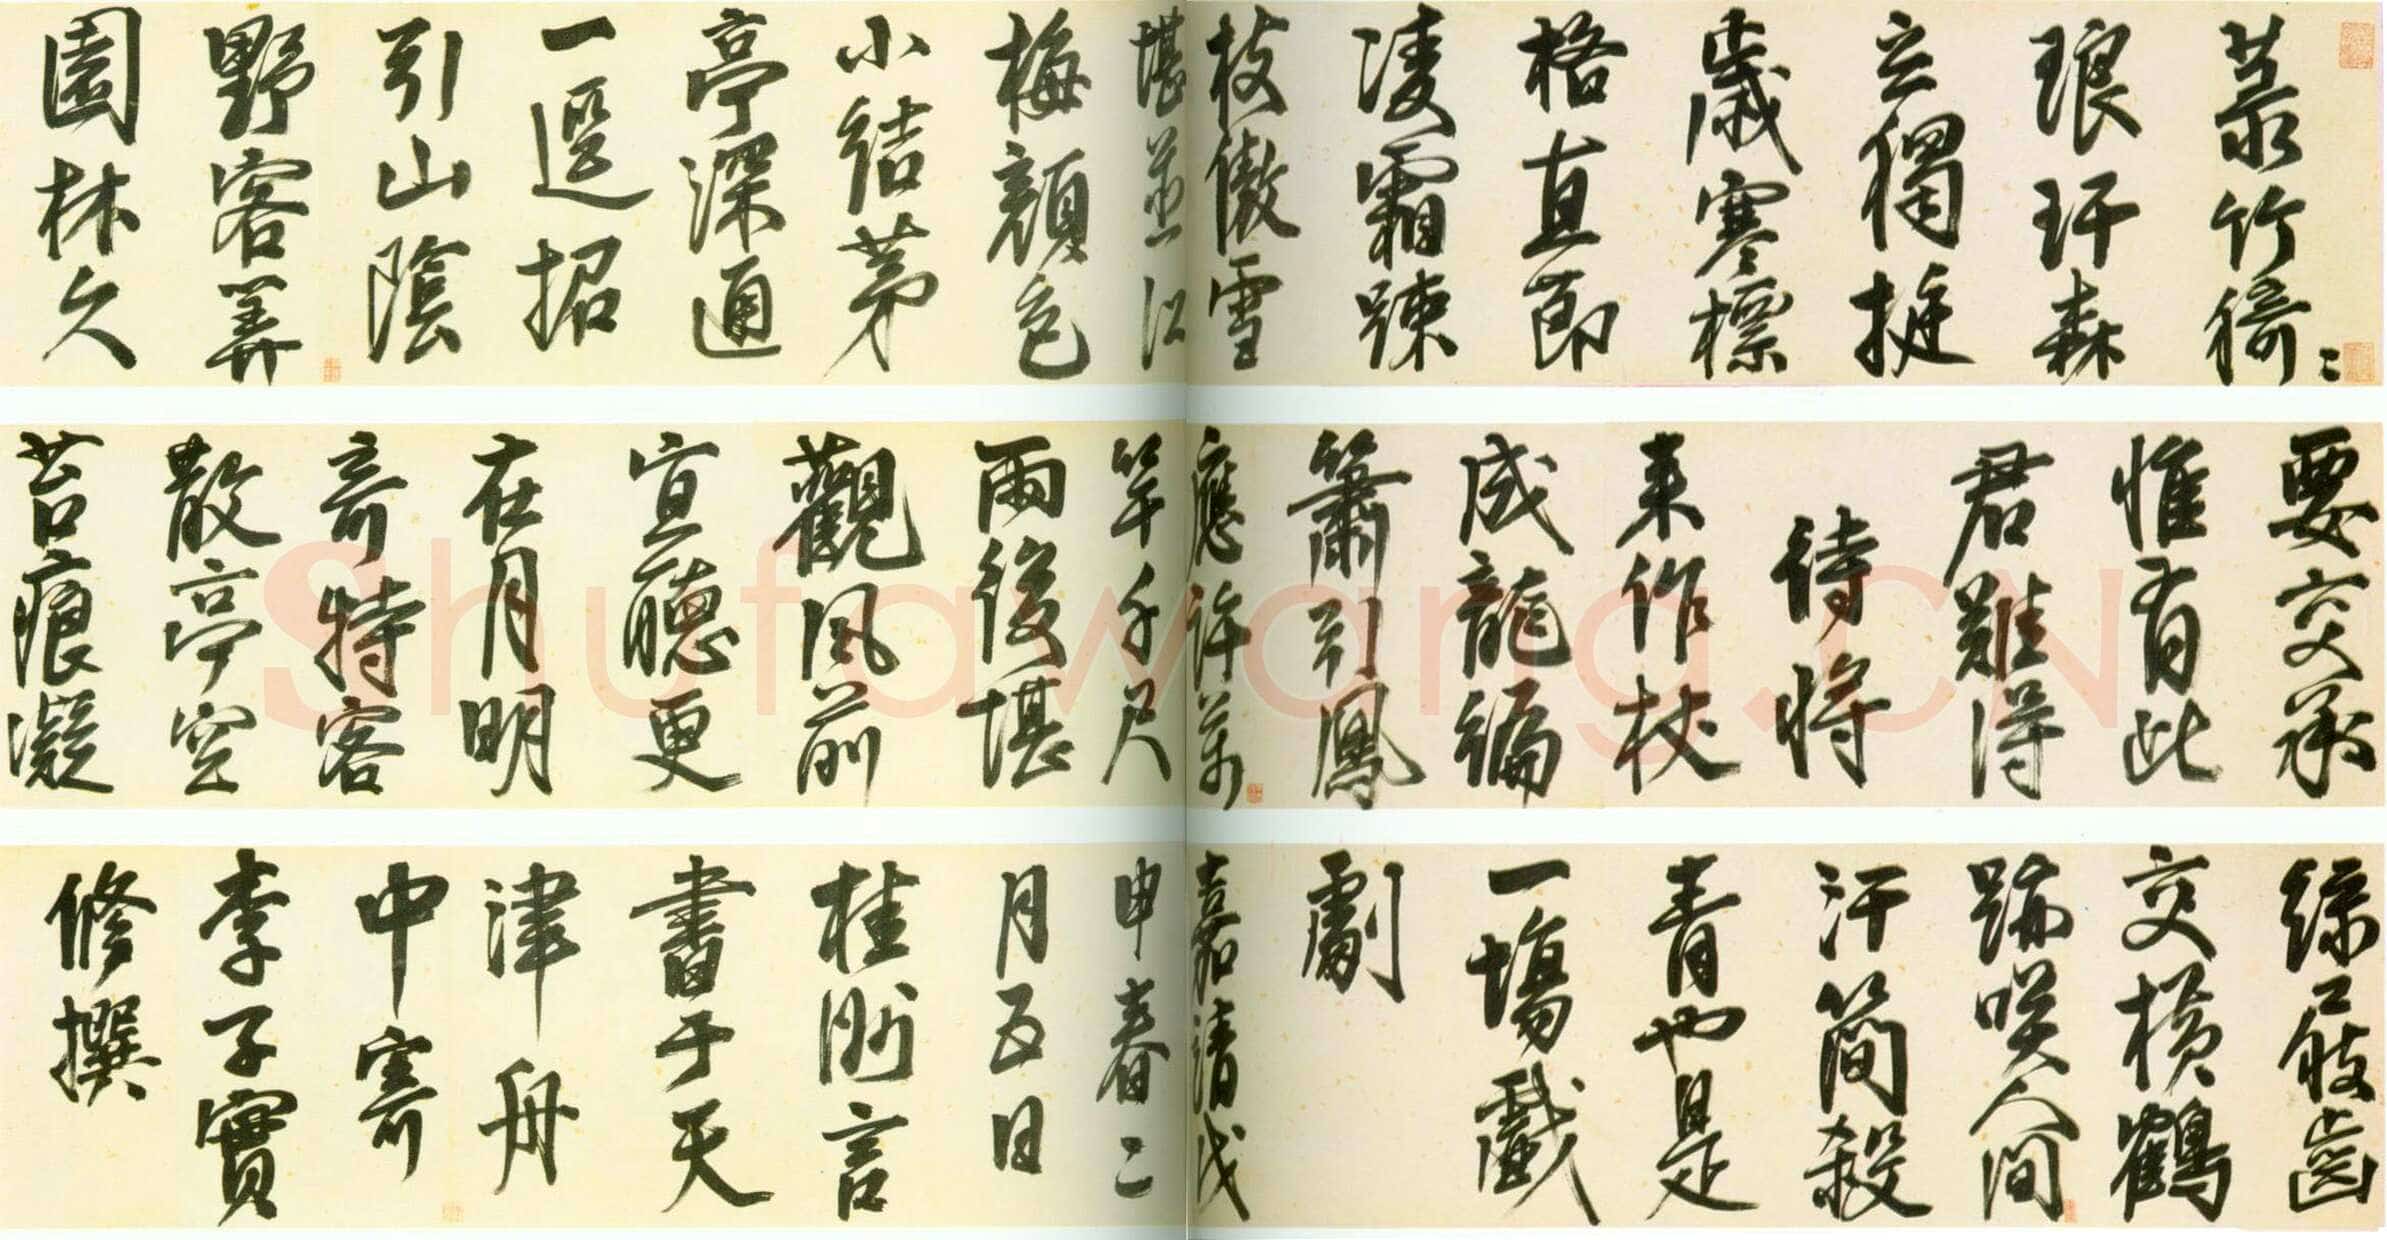 菉竹猗〻
琅玕森
立獨挺
歲寒標
格直節
凌霜踈
枝傲雪
堪並江
梅顏色
小結茅
亭深通
一逕招
引山陰
野客算
園林久
要交承
惟有此
君難得
待將
来作杖
成龍編
簫引鳳
應許萬
竿千尺
雨後堪
觀風前
宜聽更
在月明
奇特客
散亭空
苔痕凝
綠屐齒
交橫鶴
跡咲人間
汗簡殺
青也是
一場戲
劇
嘉清戊
申春二
月五日
桂洲言
書于天
津舟
中寄
李子實
修撰
Shufawang.CN